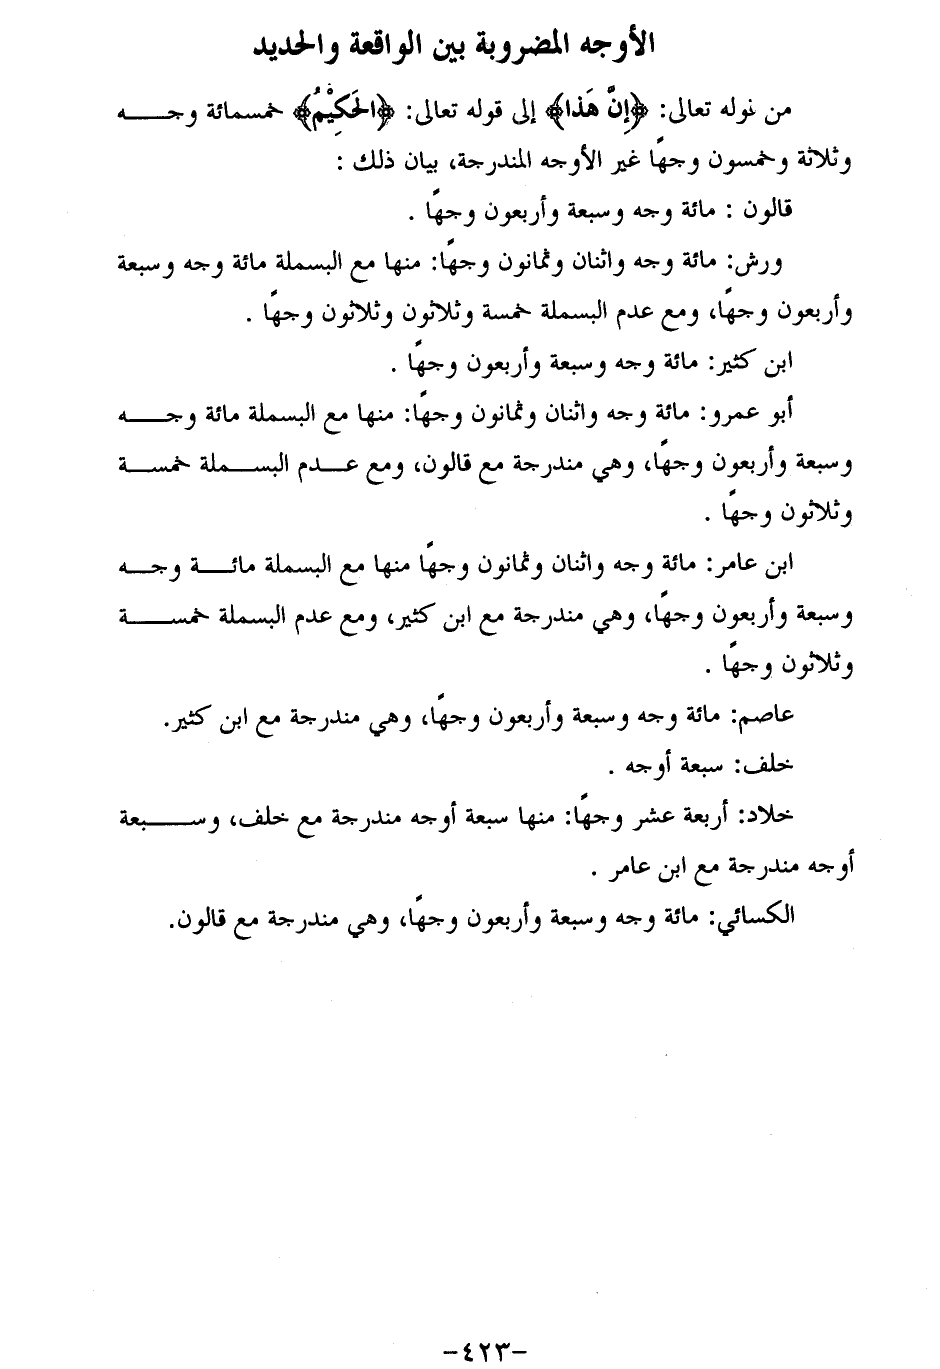 الأوجه المضروبة بين الواقعة والحديد
من قوله تعالى: ﴿إِنَّ هَذا﴾ إلى قوله تعالى: ﴿الحَكِيْمُ﴾ خمسمائة وجـــه
وثلاثة وخمسون وجهًا غير الأوجه المندرجة، بيان ذلك :
قالون : مائة وجه وسبعة وأربعون وجهًا .
ورش: مائة وجه واثنان وثمانون وجهًا: منها مع البسملة مائة وجه وسبعة
وأربعون وجهًا، ومع عدم البسملة خمسة وثلاثون وثلاثون وجهًا .
ابن كثير: مائة وجه وسبعة وأربعون وجهًا .
أبو عمرو: مائة وجه واثنان وثمانون وجهًا: منها مع البسملة مائة وجـــه
وسبعة وأربعون وجهًا، وهي مندرجة مع قالون، ومع عـــدم البســـملة خمســـة
وثلاثون وجهًا .
ابن عامر: مائة وجه واثنان وثمانون وجهًا منها مع البسملة مائـــة وجـــه
وسبعة وأربعون وجهًا، وهي مندرجة مع ابن كثير، ومع عدم البسملة خمســـة
وثلاثون وجهًا .
عاصم: مائة وجه وسبعة وأربعون وجهًا، وهي مندرجة مع ابن كثير.
خلف: سبعة أوجه .
خلاد: أربعة عشر وجهًا: منها سبعة أوجه مندرجة مع خلف، وســـبعة
أوجه مندرجة مع ابن عامر .
الكسائي: مائة وجه وسبعة وأربعون وجهًا، وهي مندرجة مع قالون.
-٤٢٣-